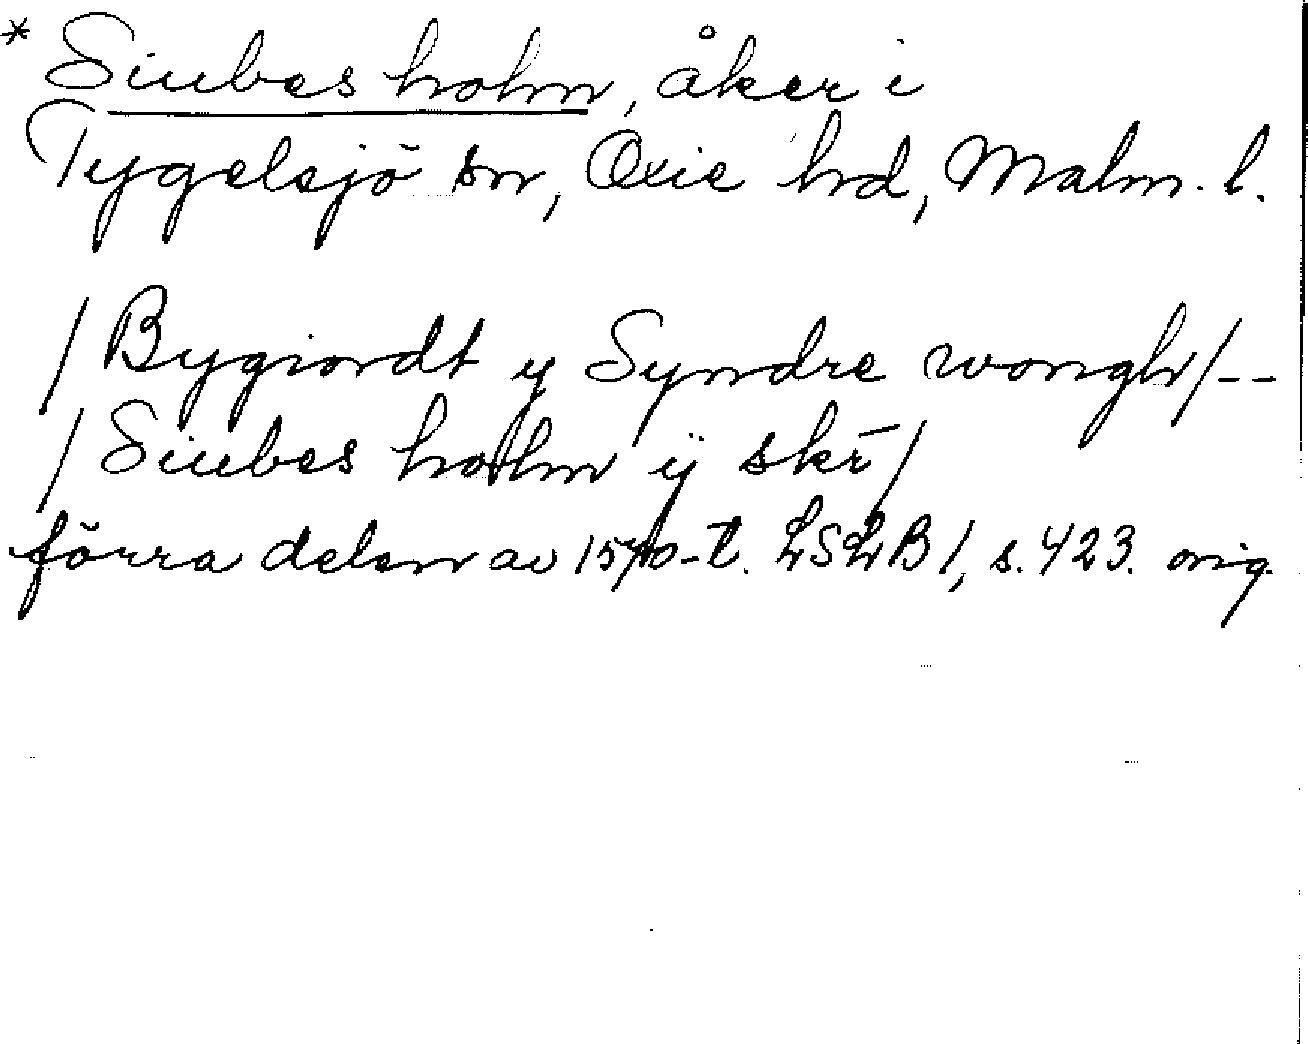 * Siubes holm, åker i
Tygelsjö sn, Oxie hd, Malm. l.
/Bygiordt y Syndre wongh/--
/Siubes holm ÿ skī/
förra delen av 1570-t. LSLB 1, s. 423. orig.